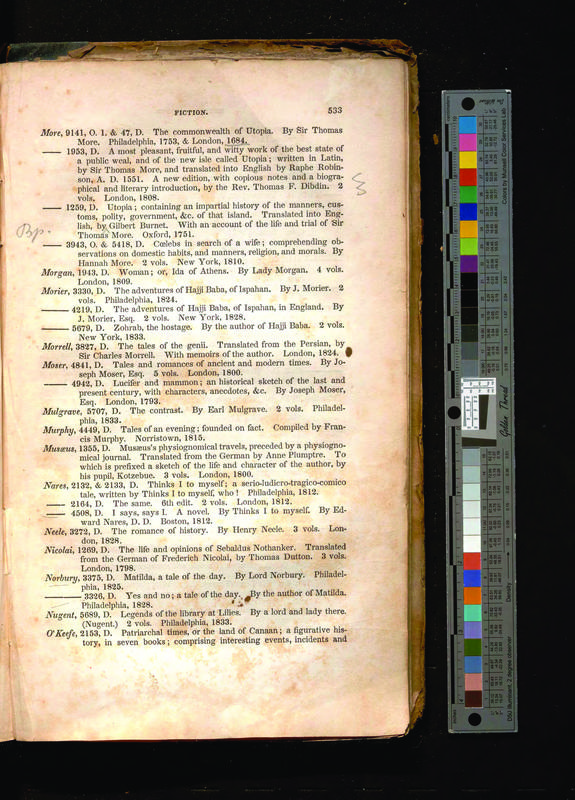 FICTION. 533
More, 9141, O. 1. & 47, D. The commonwealth of Utopia. By Sir Thomas
More. Philadelphia, 1753, & London, 1684.
—— 1953, D. A most pleasant, fruitful, and witty work of the best state of
a public weal, and of the new isle called Utopia; written in Latin,
by Sir Thomas More, and translated into English by Raphe Robin-
son, A. D. 1551. A new edition, with copious notes and a biogra-
phical and literary introduction, by the Rev. Thomas F. Dibdin. 2
vols. London, 1808.
—— 1259, D. Utopia; containing an impartial history of the manners, cus-
toms, polity, government, &c. of that island. Translated into Eng-
lish, by Gilbert Burnet. With an account of the life and trial of Sir
Thomas More. Oxford, 1751.
Bp.
—— 3943, O. & 5418, D. Cœlebs in search of a wife; comprehending ob-
servations on domestic habits, and manners, religion, and morals. By
Hannah More. 2 vols. New York, 1810.
Morgan, 1943, D. Woman; or, Ida of Athens. By Lady Morgan. 4 vols.
London, 1809.
Morier, 3330, D. The adventures of Hajji Baba, of Ispahan. By J. Morier. 2
vols. Philadelphia, 1824.
—— 4219, D. The adventures of Hajji Baba, of Ispahan, in England. By
J. Morier, Esq. 2 vols. New York, 1828.
—— 5679, D. Zohrab, the hostage. By the author of Hajji Baba. 2 vols.
New York, 1833.
Morrell, 3827, D. The tales of the genii. Translated from the Persian, by
Sir Charles Morrell. With memoirs of the author. London, 1824.
Moser, 4841, D. Tales and romances of ancient and modern times. By Jo-
seph Moser, Esq. 5 vols. London, 1800.
—— 4942, D. Lucifer and mammon; an historical sketch of the last and
present century, with characters, anecdotes, &c. By Joseph Moser,
Esq. London, 1793.
Mulgrave, 5707, D. The contrast. By Earl Mulgrave. 2 vols. Philadel-
phia, 1833.
Murphy, 4449, D. Tales of an evening; founded on fact. Compiled by Fran-
cis Murphy. Norristown, 1815.
Musæus, 1355, D. Musæus's physiognomical travels, preceded by a physiogno-
mical journal. Translated from the German by Anne Plumptre. To
which is prefixed a sketch of the life and character of the author, by
his pupil, Kotzebue. 3 vols. London, 1800.
Nares, 2132, & 2133, D. Thinks I to myself; a serio-ludicro-tragico-comico
tale, written by Thinks I to myself, who! Philadelphia, 1812.
—— 2164, D. The same. 6th edit. 2 vols. London, 1812.
—— 4508, D. I says, says I. A novel. By Thinks I to myself. By Ed-
ward Nares, D. D. Boston, 1812.
Neele, 3272, D. The romance of history. By Henry Neele. 3 vols. Lon-
don, 1828.
Nicolai, 1269, D. The life and opinions of Sebaldus Nothanker. Translated
from the German of Frederich Nicolai, by Thomas Dutton. 3 vols.
London, 1798.
Norbury, 3375, D. Matilda, a tale of the day. By Lord Norbury. Philadel-
phia, 1825.
—— 3326, D. Yes and no; a tale of the day. By the author of Matilda.
Philadelphia, 1828.
Nugent, 5689, D. Legends of the library at Lilies. By a lord and lady there.
(Nugent.) 2 vols. Philadelphia, 1833.
O'Keefe, 2153, D. Patriarchal times, or the land of Canaan; a figurative his-
tory, in seven books; comprising interesting events, incidents and
Golden Thread
Density